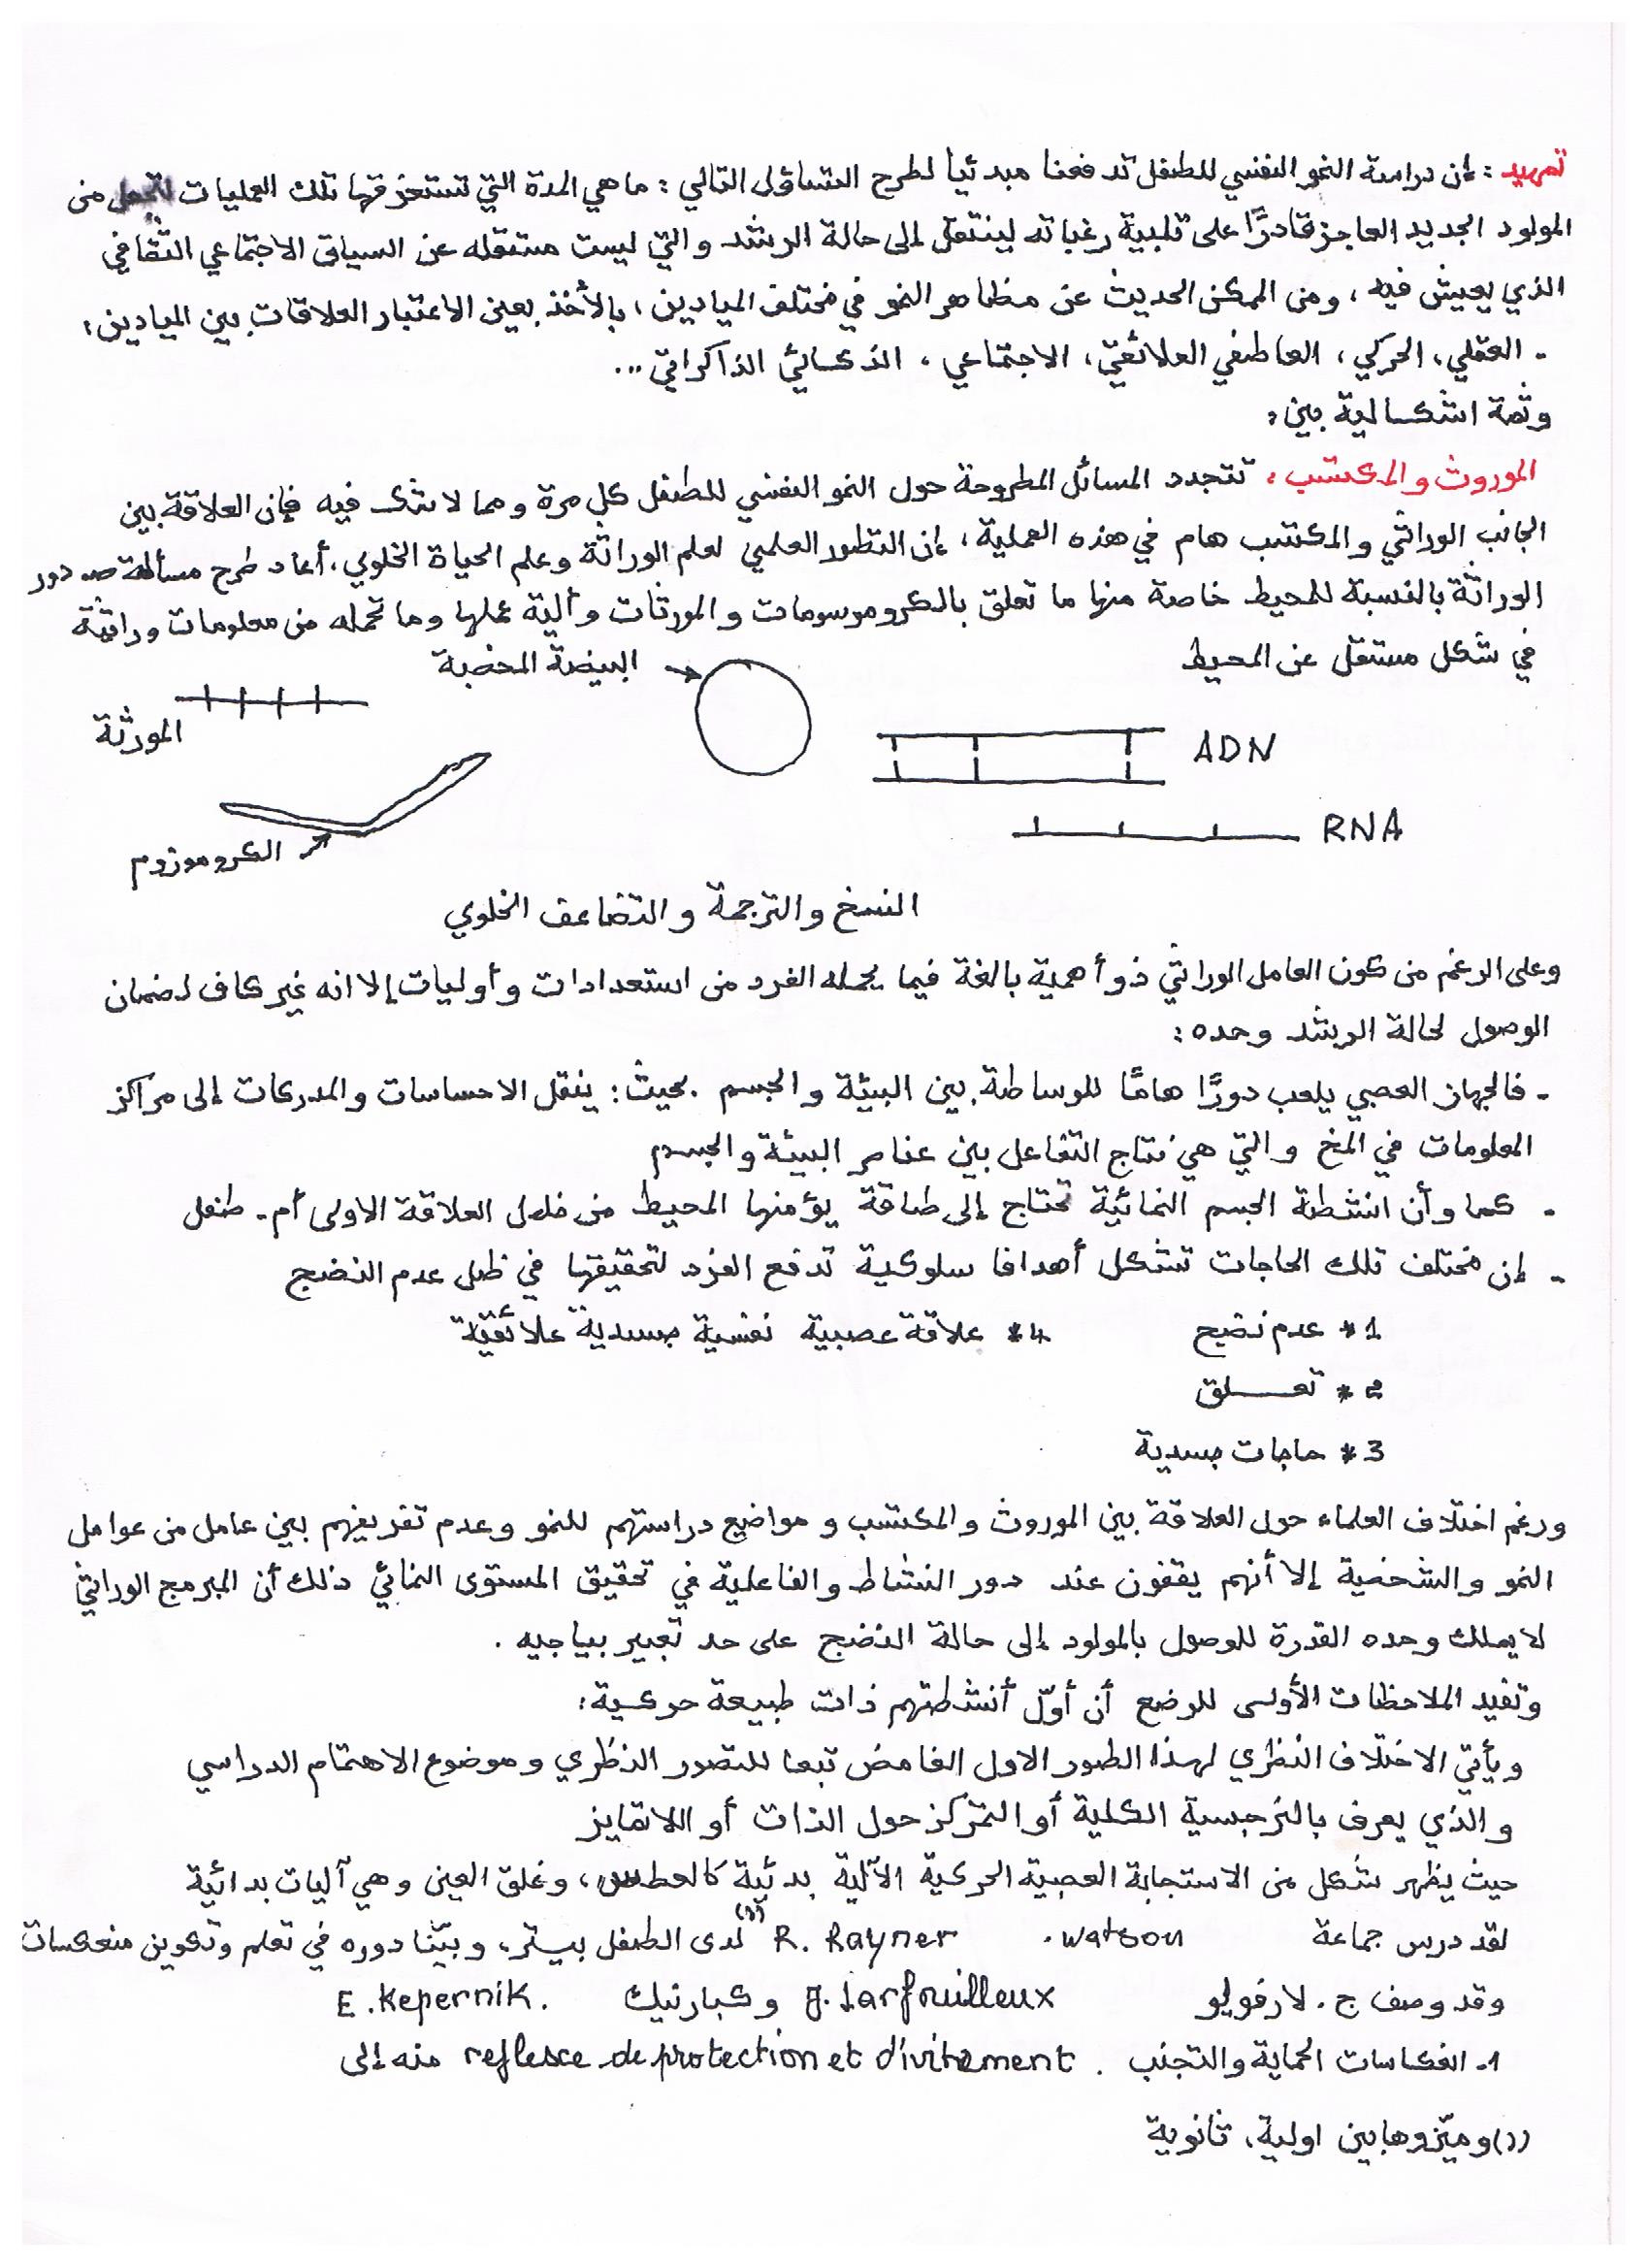 تمهيد : إن دراسة النمو النفسي للطفل تدفعنا مبدئيا لطرح التساؤل التالي : ما هي المدة التي تستغرقها تلك العمليات لتجعل من
المولود الجديد العاجز قادرًا على تلبية رغباته لينتقل إلى حالة الرشد والتي ليست مستقله عن السياق الاجتماعي الثقافي
الذي يعيش فيه ، ومن الممكن الحديث عن مظاهر النمو في مختلف الميادين ، بالأخذ بعين الاعتبار العلاقات بين الميادين :
- العقلي ، الحركي ، العاطفي العلائقي ، الاجتماعي ، الذكائي الذاكراتي ...
وثمة اشكالية بين :
الموروث والمكتسب : تتجدد المسائل المطروحة حول النمو النفسي للطفل كل مرة ومما لا شك فيه فإن العلاقة بين
الجانب الوراثي والمكتسب هام في هذه العملية ، إن التطور العلمي لعلم الوراثة وعلم الحياة الخلوي ، أعاد طرح مسألة دور
الوراثة بالنسبة للمحيط خاصة منها ما تعلق بالكروموسومات والمورثات وآلية عملها وما تحمله من معلومات وراثية
في شكل مستقل عن المحيط
البيضة المخصبة
المورثة
ADN
RNA
الكروموزوم
النسخ والترجمة والتضاعف الخلوي
وعلى الرغم من كون العامل الوراثي ذو أهمية بالغة فيما يحمله الفرد من استعدادات وأوليات إلا انه غير كاف لضمان
الوصول لحالة الرشد وحده :
- فالجهاز العصبي يلعب دورًا هامًا للوساطة بين البيئة والجسم . بحيث : ينقل الاحساسات والمدركات إلى مراكز
المعلومات في المخ والتي هي نتاج التفاعل بين عناصر البيئة والجسم
- كما وأن انشطة الجسم النمائية تحتاج إلى طاقة يؤمنها المحيط من خلال العلاقة الاولى أم - طفل
- إن مختلف تلك الحاجات تشكل أهدافا سلوكية تدفع الفرد لتحقيقها في ظل عدم النضج
1* عدم نضج
4* علاقة عصبية نفسية جسدية علائقية
2* تعلق
3* حاجات جسدية
ورغم اختلاف العلماء حول العلاقة بين الموروث والمكتسب و مواضيع دراستهم للنمو وعدم تفريقهم بين عامل من عوامل
النمو والشخصية إلا أنهم يقفون عند دور النشاط والفاعلية في تحقيق المستوى النمائي ذلك أن المبرمج الوراثي
لا يملك وحده القدرة للوصول بالمولود إلى حالة النضج على حد تعبير بياجيه .
وتفيد الملاحظات الأولى للرضع أن أوّل أنشطتهم ذات طبيعة حركية :
ويأتي الاختلاف النظري لهذا الطور الاول الغامض تبعا للتصور النظري وموضوع الاهتمام الدراسي
والذي يعرف بالنرجسية الكلية أو التمركز حول الذات أو اللاتمايز
حيث يظهر شكل من الاستجابة العصبية الحركية الآلية بدئية كالعطس ، وغلق العين وهي آليات بدائية
لقد درس جماعة watson . R. Rayner (1) لدى الطفل بيتر ، وبيّنا دوره في تعلم وتكوين منعكسات
وقد وصف ج . لارفويلو J. Larfouilleux وكبارنيك E. Kepernik.
1- انعكاسات الحماية والتجنب . reflesce de protection et d'ivitement منه إلى
(1) وميّزوها بين اولية ، ثانوية